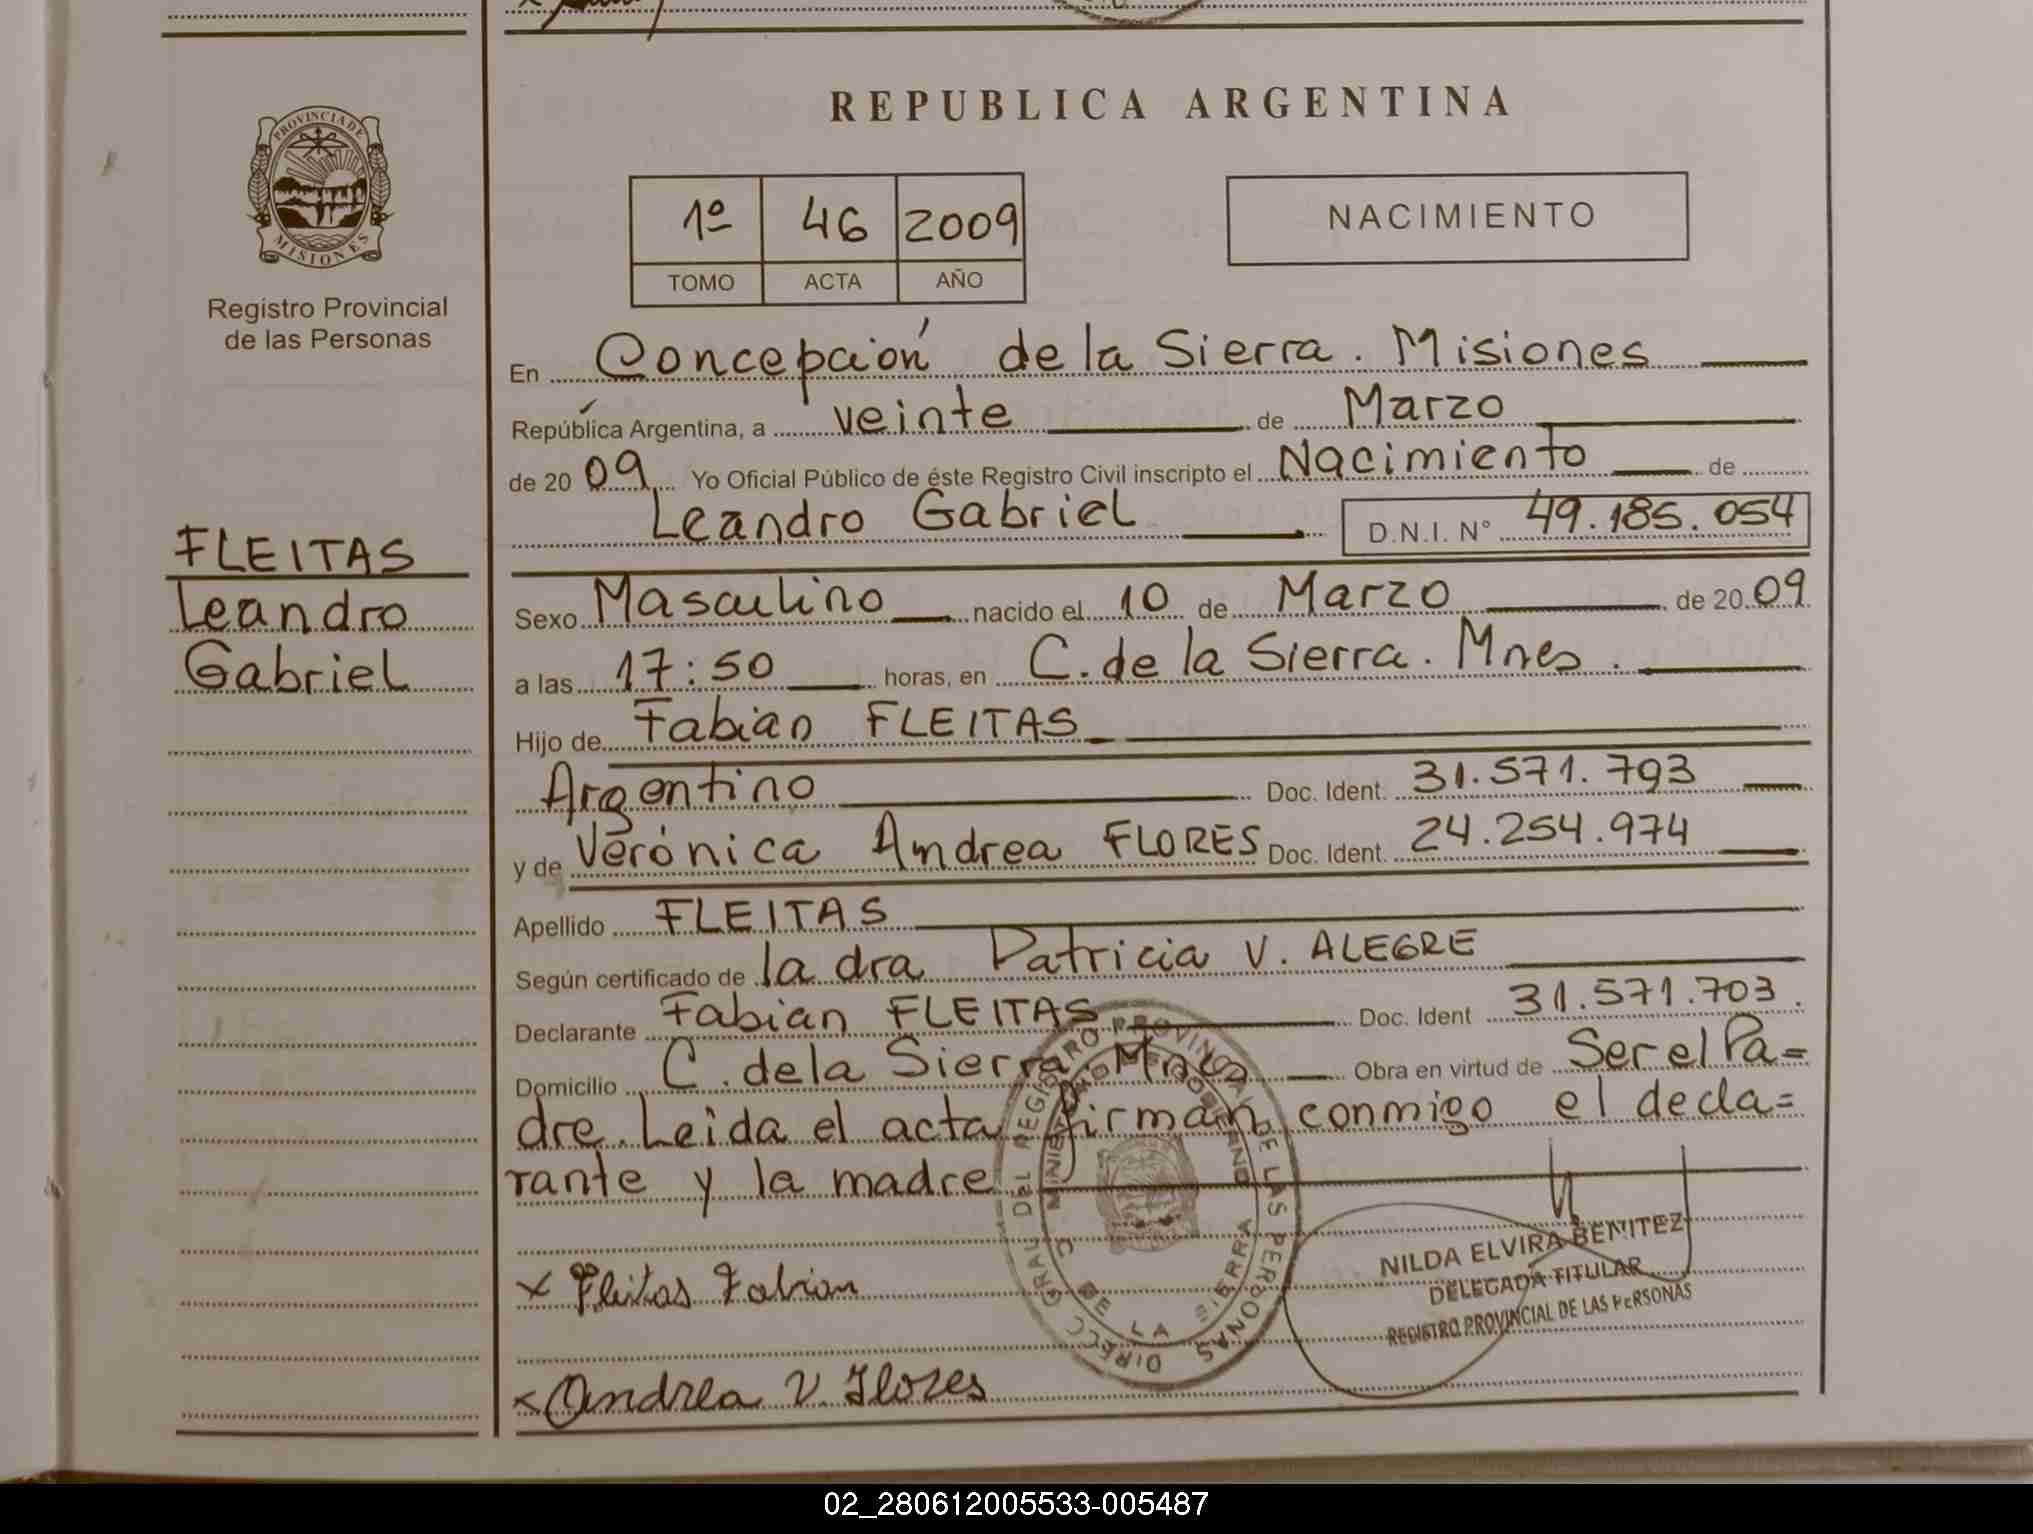 REPUBLICA ARGENTINA
PROVINCIA DE MISIONES
Registro Provincial
de las Personas
1º 46 2009
TOMO ACTA AÑO
NACIMIENTO
En Concepción de la Sierra. Misiones
República Argentina, a veinte de Marzo
de 2009 Yo Oficial Público de éste Registro Civil inscripto el Nacimiento de
Leandro Gabriel D.N.I. Nº 49.185.054
FLEITAS
Leandro
Gabriel
Sexo Masculino nacido el 10 de Marzo de 2009
a las 17:50 horas, en C. de la Sierra. Mnes.
Hijo de Fabian FLEITAS
Argentino Doc. Ident. 31.571.793
y de Verónica Andrea FLORES Doc. Ident. 24.254.974
Apellido FLEITAS
Según certificado de la dra Patricia V. ALEGRE
Declarante Fabian FLEITAS Doc. Ident 31.571.703.
Domicilio C. de la Sierra. Mnes Obra en virtud de Ser el Pa=
dre. Leida el acta firman conmigo el decla=
rante y la madre
DIRECC GRAL DEL REGISTRO PROVINCIAL DE LAS PERSONAS
C DE LA SIERRA
x Fleitas Fabian
NILDA ELVIRA BENITEZ
DELEGADA TITULAR
REGISTRO PROVINCIAL DE LAS PERSONAS
x Andrea V. Flores
02_280612005533-005487